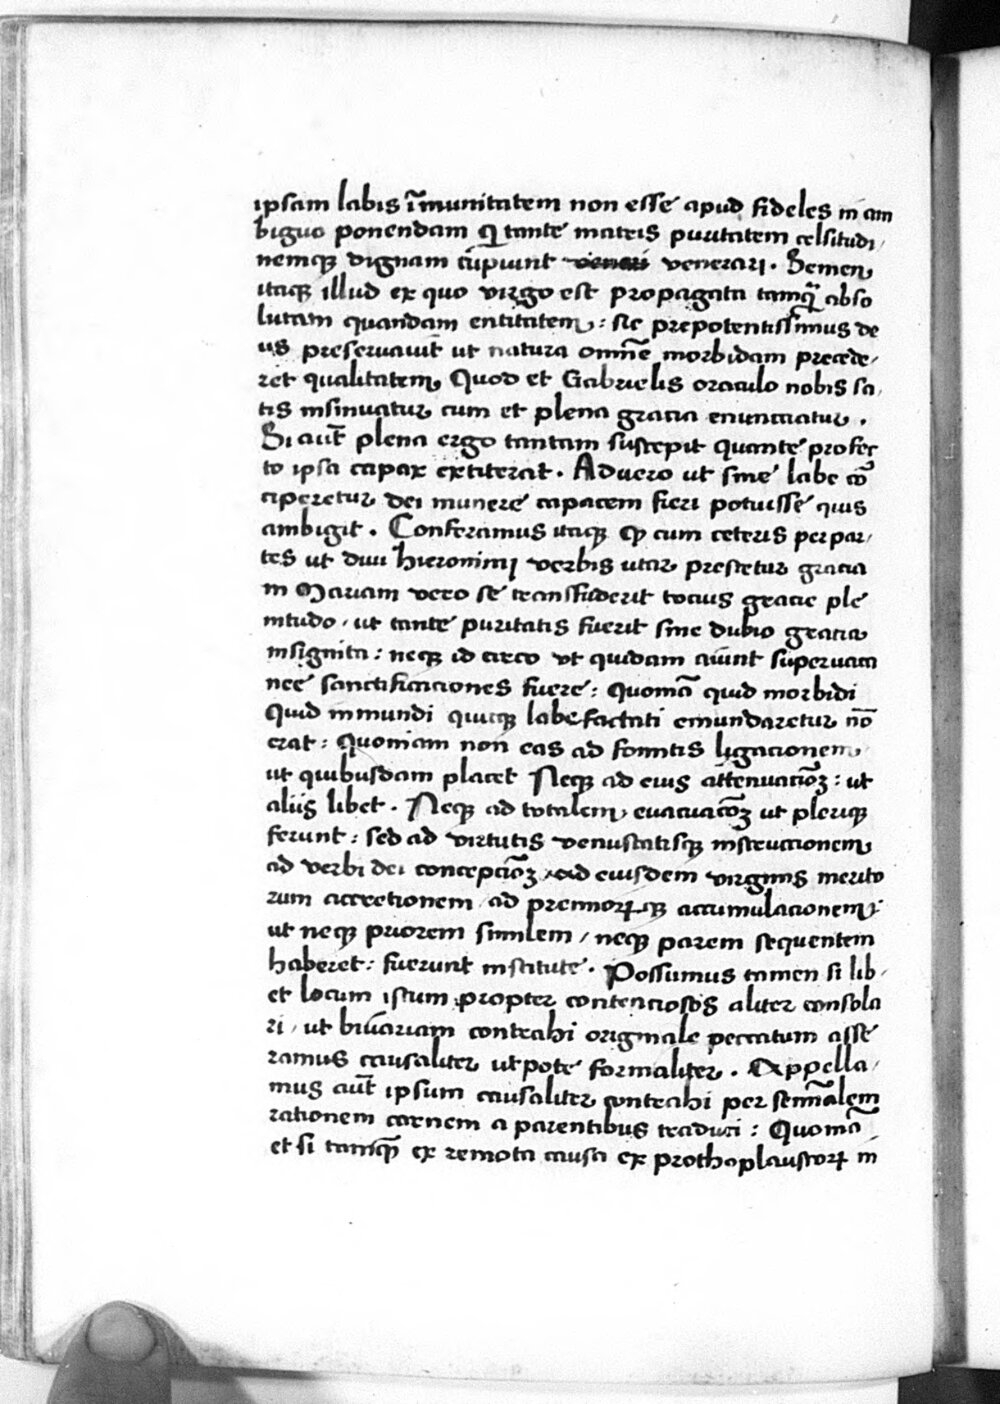 ipsam labis īmunitatem non esse apud fideles in am
biguo ponendam qi tante matris puritatem celsitudi/
nemqꝫ dignam cupiunt venerari. Semen
itaqꝫ illud ex quo virgo est propagata tamqȝ abso
lutam quandam entitatem: sic prepotentissimus de
us preseruauit ut natura omnē morbidam precede/
ret qualitatem, Quod et Gabrielis oraculo nobis sa/
tis insinuatur cum et plena gracia enunctiatur.
Si aut̄ plena ergo tantam suscepit quante profec
to ipsa capax extiterat. Aduero ut sine labe cō
ciperetur dei munere capacem fieri potuisse quis
ambigit. Conferamus itaqꝫ ꝙ cum ceteris per par/
tes ut diui hieronimi verbis utar prestetur gracia
in Mariam vero se transfuderit tocius gracie ple
nitudo, ut tante puritatis fuerit sine dubio gracia
insignita: neqꝫ id circo ut quidam aiunt superuaca
nee sanctificaciones fuere: Quoniā quid morbidi
Quid inmundi quicqꝫ labefactati emundaretur nō
erat: Quoniam non eas ad fomitis ligacionem,
ut quibusdam placet Neqꝫ ad eius attenuaciōꝫ: ut
aliis libet. Neqꝫ ad totalem, euacuacōꝫ ut pleriqꝫ
ferunt: sed ad virtutis venustatisqꝫ instruccionem
ad verbi dei concepciōꝫ ad eiusdem virginis merito
rum accretionem ad premiorꝝqꝫ accumulacionem:
ut neqꝫ priorem similem / neqꝫ parem sequentem
haberet: fuerunt institute. Possumus tamen si lib/
et locum istum propter contenciosos aliter consola
ri, ut bivariam contrahi originale peccatum asse
ramus causaliter utpote formaliter. Appella/
mus aut̄ ipsum causaliter contrahi per seminalem
rationem carnem a parentibus traduci: Quoniā
et si tamqȝ ex remota causa ex prothoplaustorꝝ in